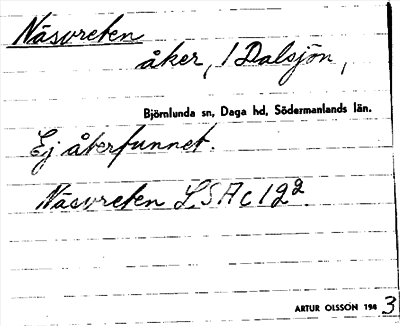 Näsvreten
åker, 1 Dalsjön,
Björnlunda sn, Daga hd, Södermanlands län.
Ej återfunnet.
Näsvreten LSA c 12²
ARTUR OLSSON 1943